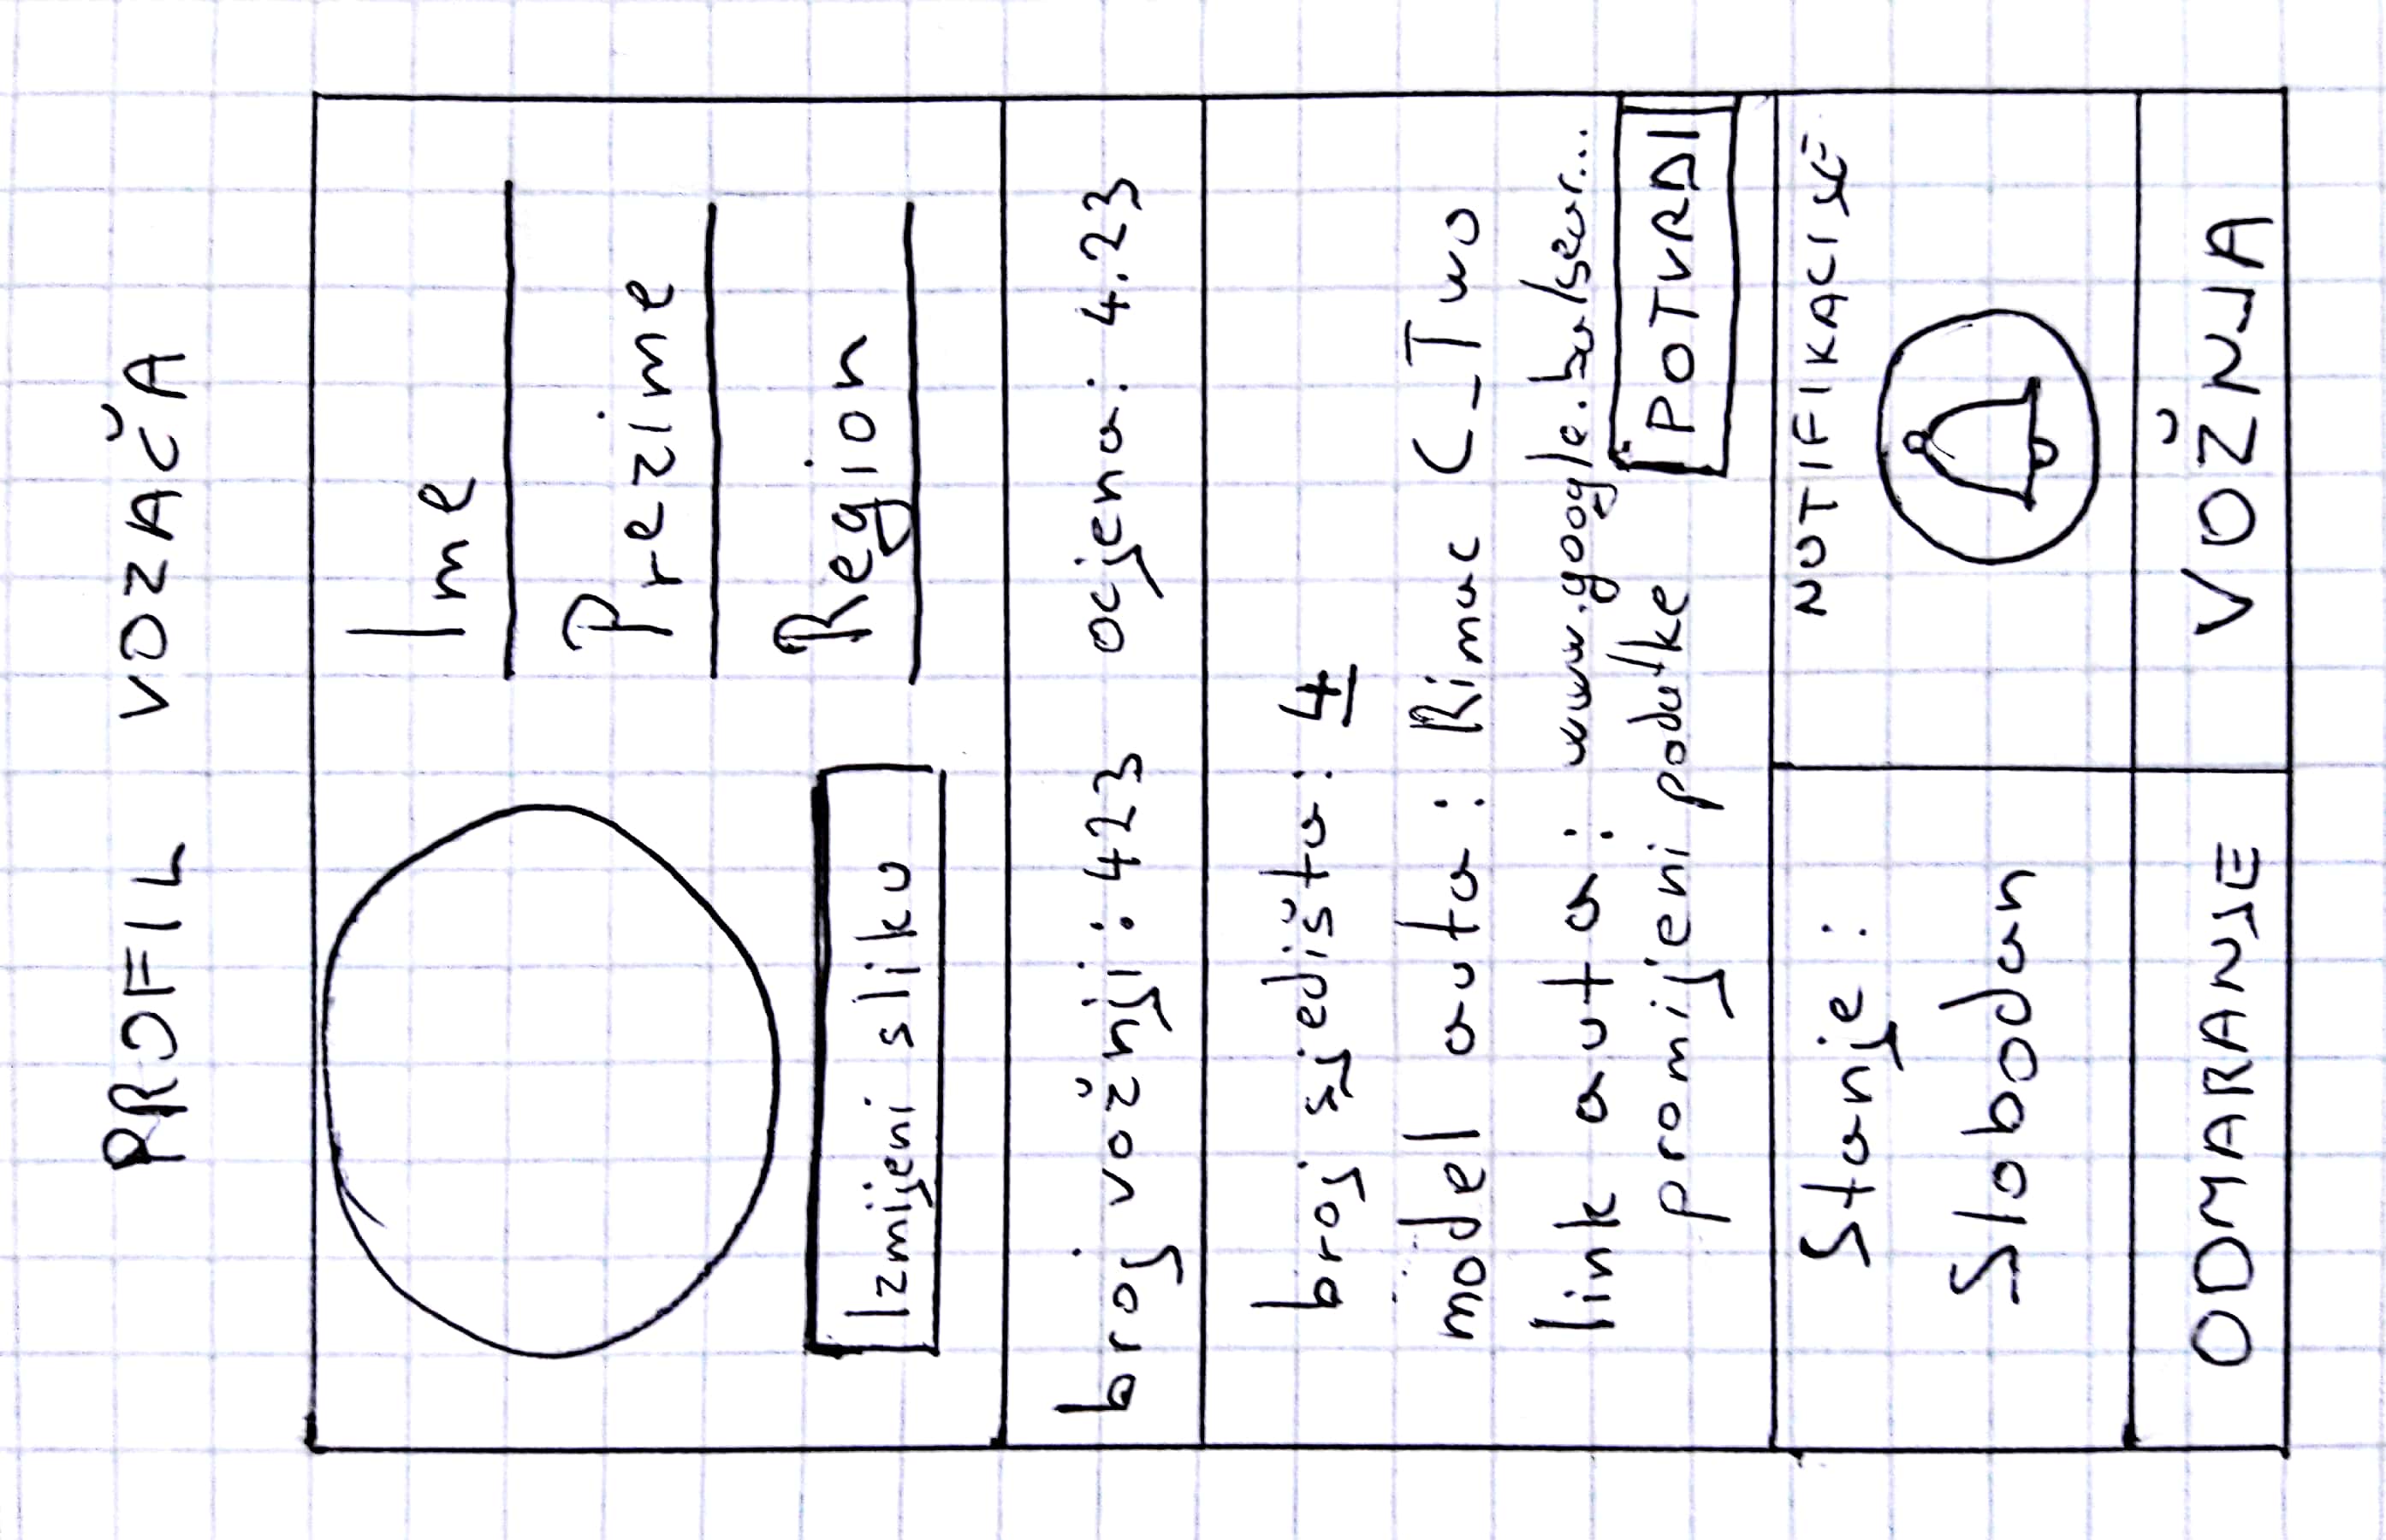 PROFIL VOZAČA
Ime
Prezime
Region
Izmijeni sliku
broj vožnji: 423 ocjena: 4.23
broj sjedišta: 4
model auta: Rimac C_Two
link auta: www.google.ba/sear...
promijeni podatke POTVRDI
Stanje:
Slobodan
NOTIFIKACIJE
ODMARANJE VOŽNJA